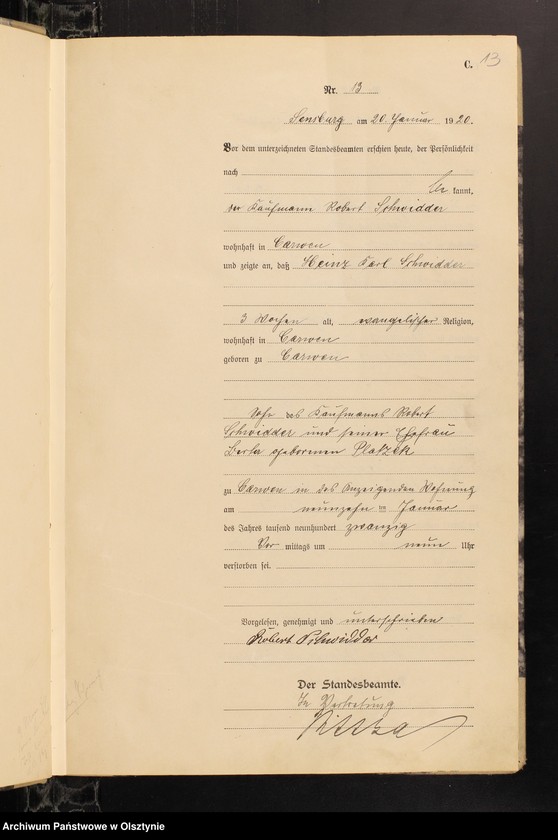 C. 13
Nr. 13
Sensburg am 20. Januar 1920.
Vor dem unterzeichneten Standesbeamten erschien heute, der Persönlichkeit
nach
be kannt,
der Kaufmann Robert Schwidder
wohnhaft in Carwen
und zeigte an, daß Heinz Karl Schwidder
3 Wochen alt, evangelischer Religion,
wohnhaft in Carwen
geboren zu Carwen
Sohn des Kaufmanns Robert
Schwidder und seiner Ehefrau
Berta geborenen Platzek
zu Carwen in des Anzeigenden Wohnung
am neunzehnten Januar
des Jahres tausend neunhundert zwanzig
Vor mittags um neun Uhr
verstorben sei.
Vorgelesen, genehmigt und unterschrieben
Robert Schwidder
Der Standesbeamte.
In Vertretung
Archiwum Państwowe w Olsztynie